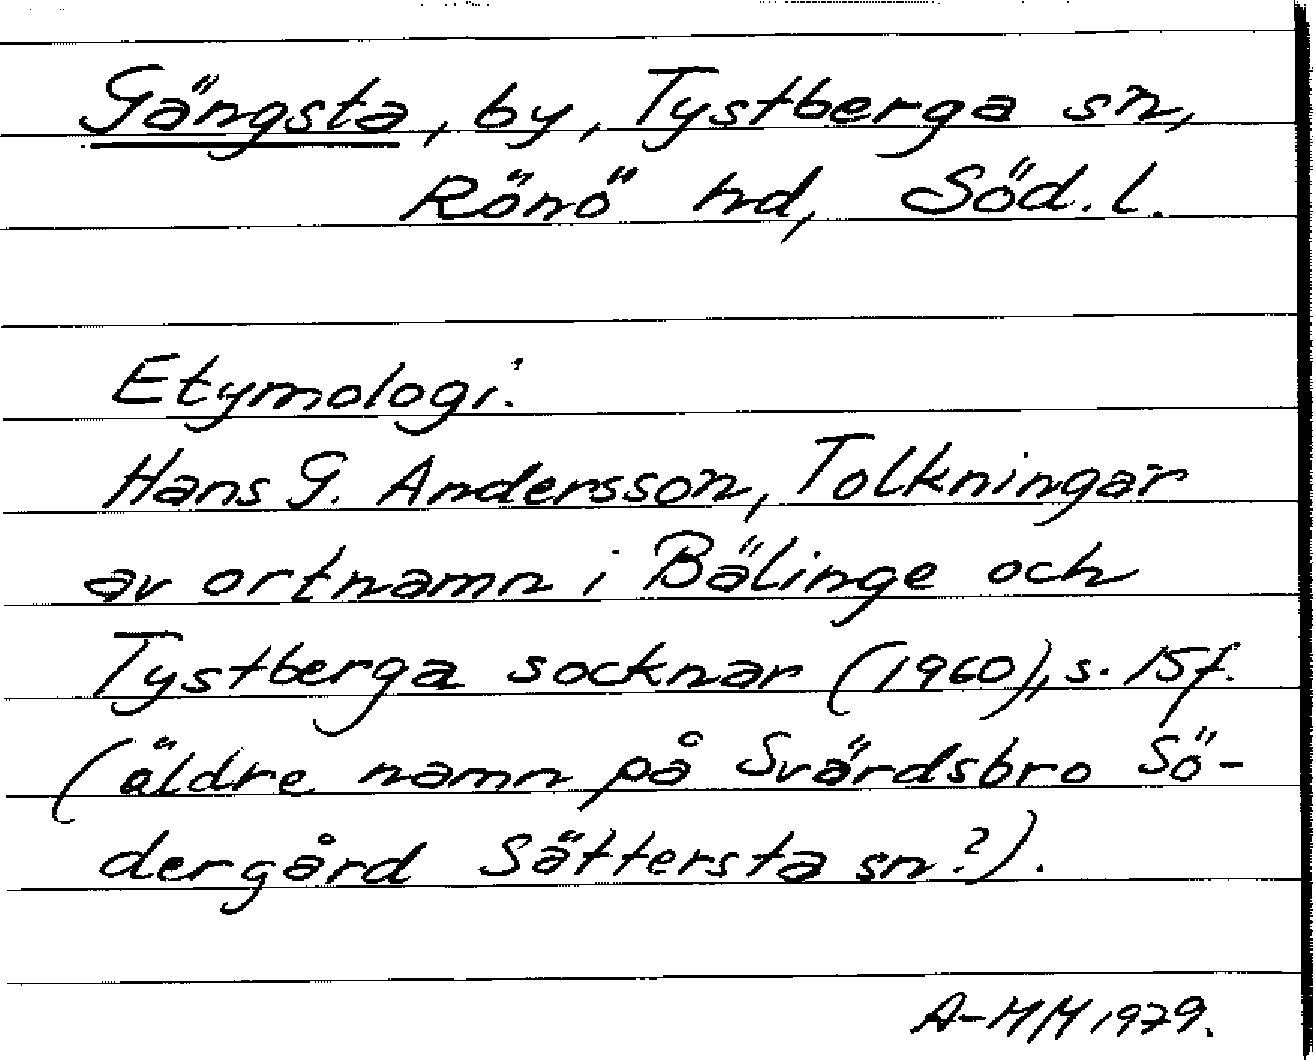 Gängsta, by, Tystberga sn,
Rönö hd, Söd. l.
Etymologi:
Hans G. Andersson, Tolkningar
av ortnamn i Bälinge och
Tystberga socknar (1960), s. 15f.
(äldre namn på Svärdsbro Sö-
dergård Sättersta sn?).
A-MM 1979.